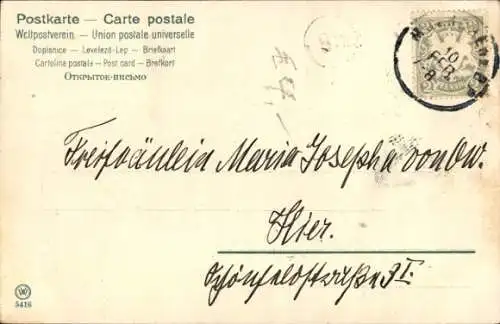 Postkarte — Carte postale
Weltpostverein — Union postale universelle
Dopisnice — Levelező-Lap — Briefkaart
Cartolina postale — Post card — Brefkort
Открытое-письмо
10
FEB
7-8
Freifräulein Maria Josepha von Ow.
Hier.
Schönfeldstraße 3 I.
W
5416